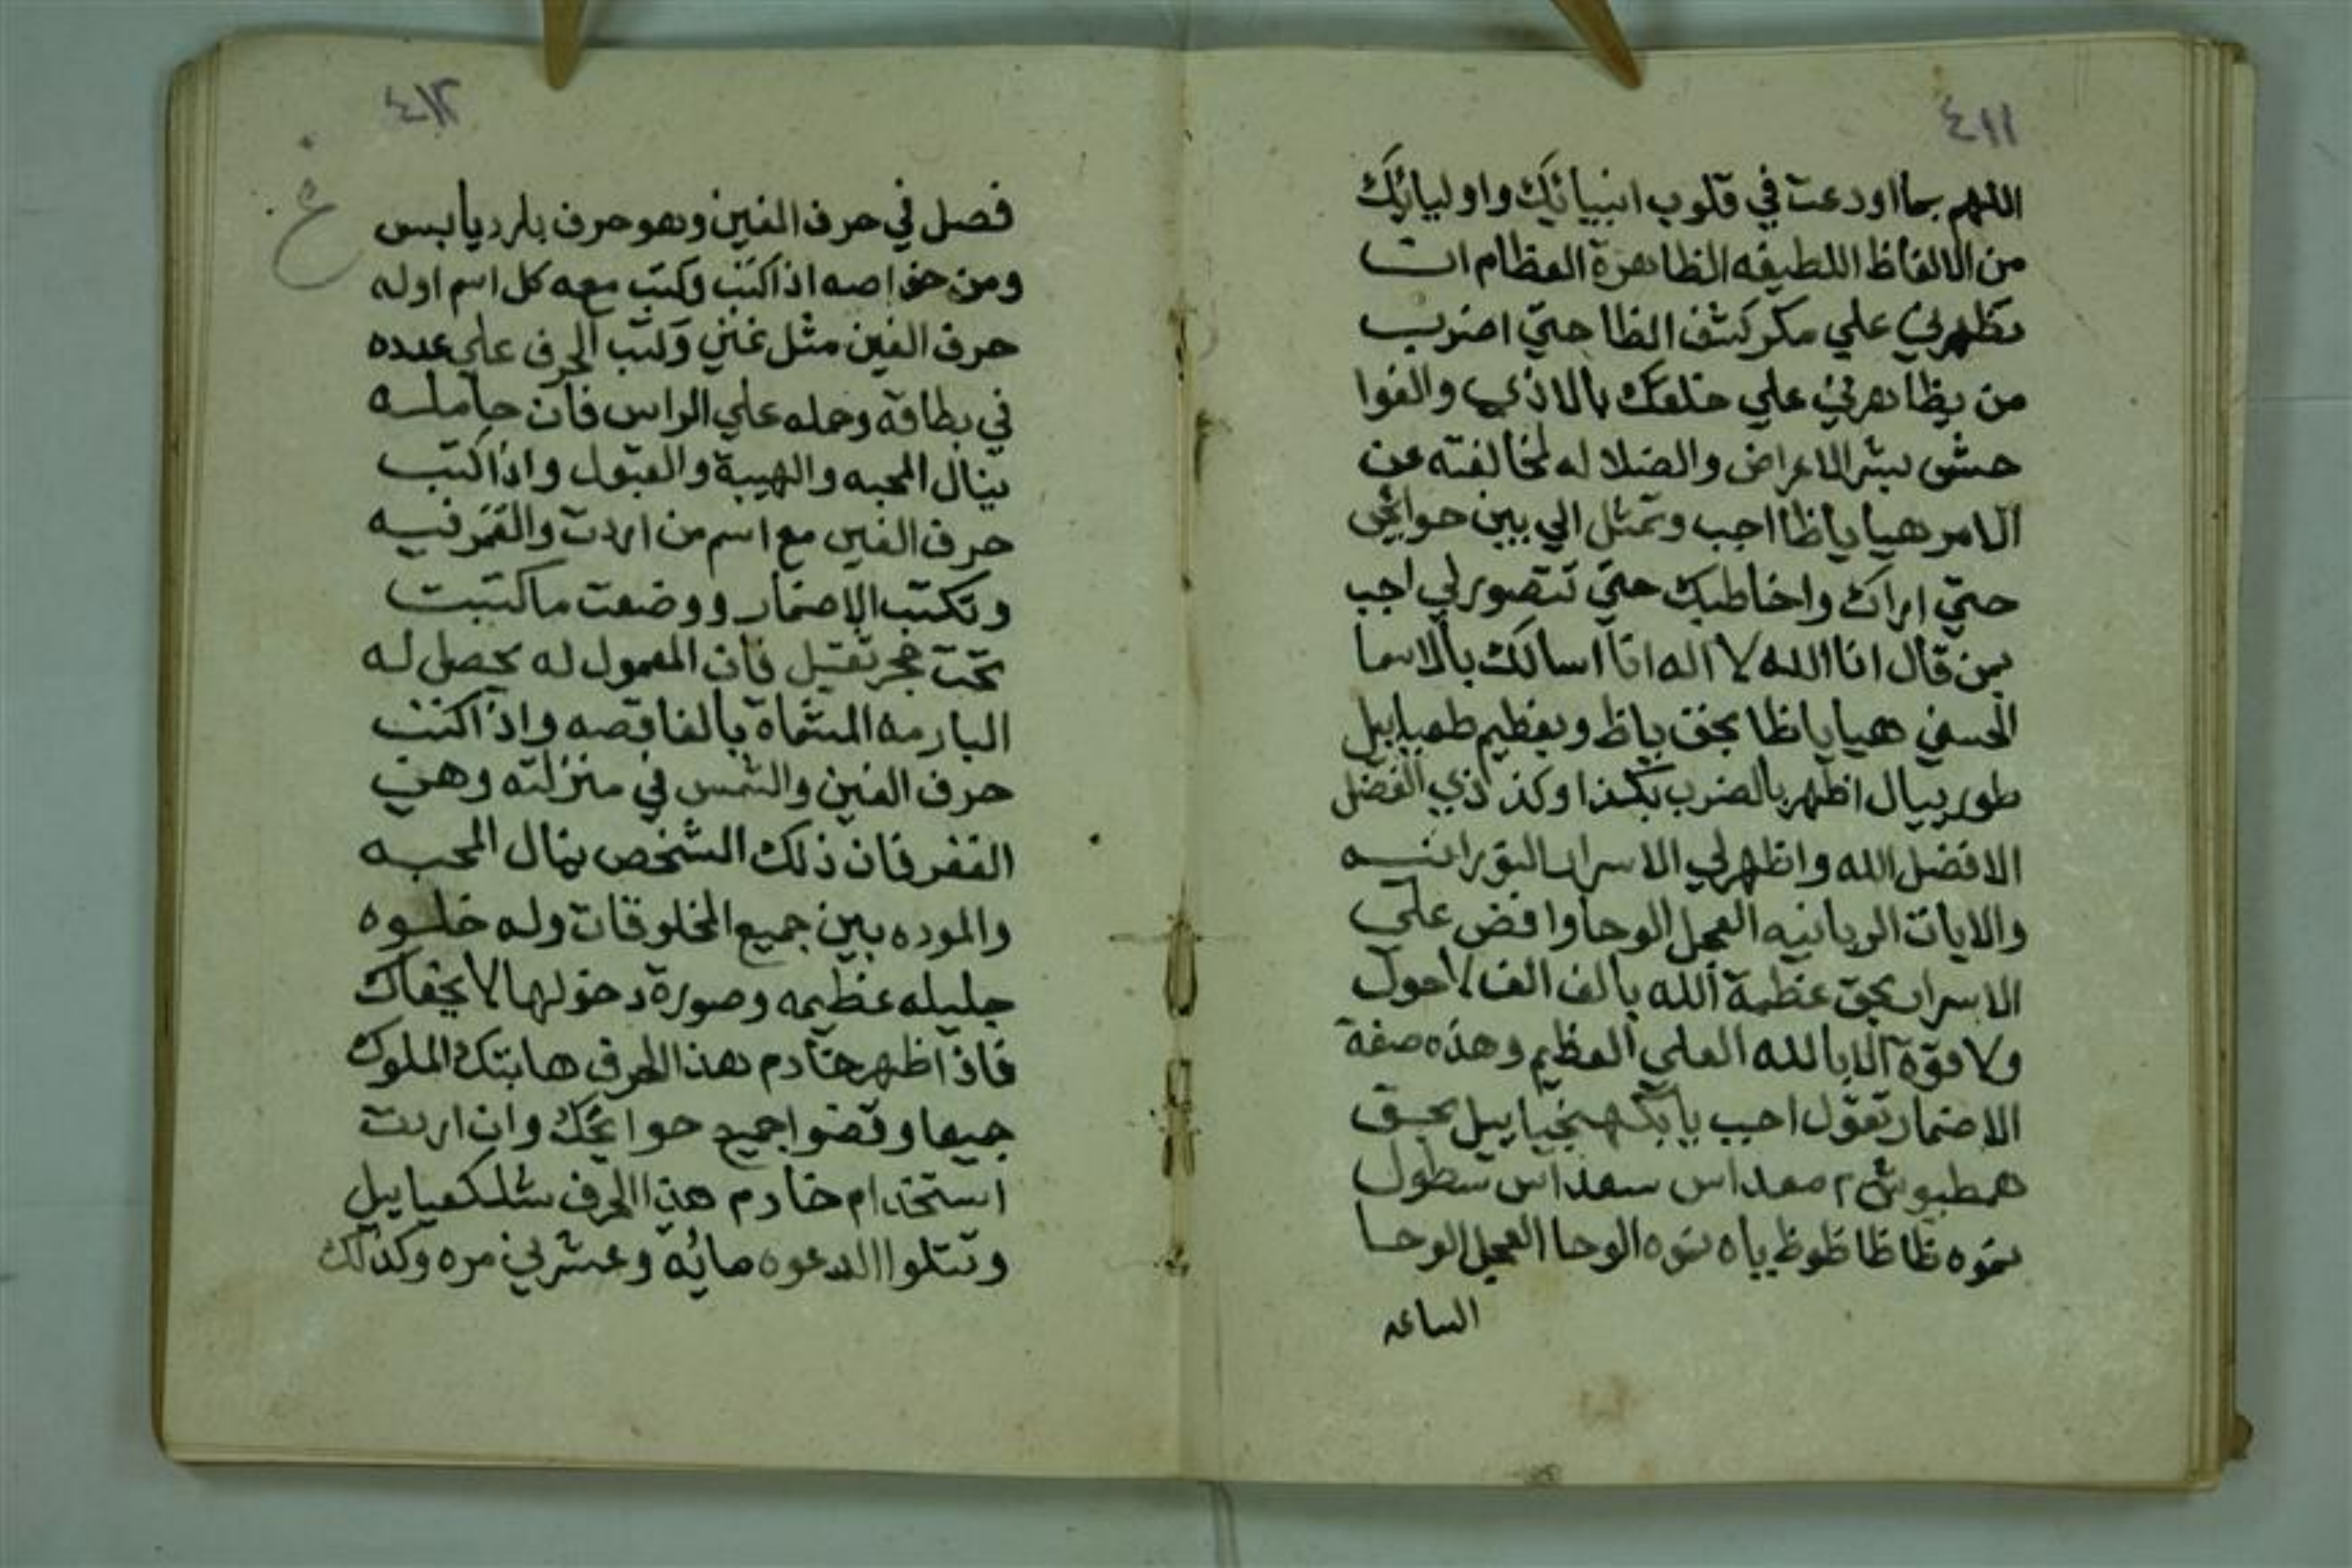 ٤١١
اللهم بما اودعت في قلوب انبيائك واوليائك
من الالفاظ اللطيفه الظاهرة العظام ان
تظهرني علي مكر كشف الظا حتي اضرب
من يظاهرني علي خلقك بالاذي والغوا
بشر الاعراض والضلاله لمخالفته عن
الامر هيا ياظا اجب وتمثل الي بين حوايجي
حتي اراك واخاطبك حتي تتصور لي اجب
بمن قال انا الله لا اله انا اسالك بالاسما
الحسني هيا ياظا بحق ياظ وبعظيم طعيائيل
طوريال اظهر بالضرب بكذا وكذا ذي الفضل
الافضل الله واظهر لي الاسرار النورانيه
والايات الربانيه العجل الوحا وافض علي
الاسرار بحق عظمة الله بالف الف لاحول
ولا قوة الا بالله العلي العظيم وهذه صفة
الاضمار تقول اجب يا بحق
همطبوش ٢ معداس سعداس سطول
نموه ظا ظا ظوظ ياه نموه الوحا العجل الوحا
الساعه
٤١٢
غ
فصل في حرف الغين وهو حرف بارد يابس
ومن خواصه اذا كتب وكتب معه كل اسم اوله
حرف الغين مثل غني وكتب الحرف علي عدده
في بطاقة وحمله علي الراس فان حامله
ينال المحبه والهيبة والقبول واذا كتب
حرف الغين مع اسم من اردت والقمر فيه
وتكتب الاضمار ووضعت ما كتبت
تحت حجر ثقيل فان المعمول له يحصل له
البارمه المسماة بالفاقصه واذا كتب
حرف الغين والشمس في منزلته وهي
الغفر فان ذلك الشخص ينال المحبه
والموده بين جميع المخلوقات وله خلوه
جليله عظيمه وصورة دخولها لا يخفاك
فاذا ظهر خادم هذا الحرف هابتك الملوك
جميعا وقضوا جميع حوايجك وان اردت
استخدام خادم هذا الحرف شلكعيائيل
وتتلوا الدعوه مائه وعشرين مره وكذلك